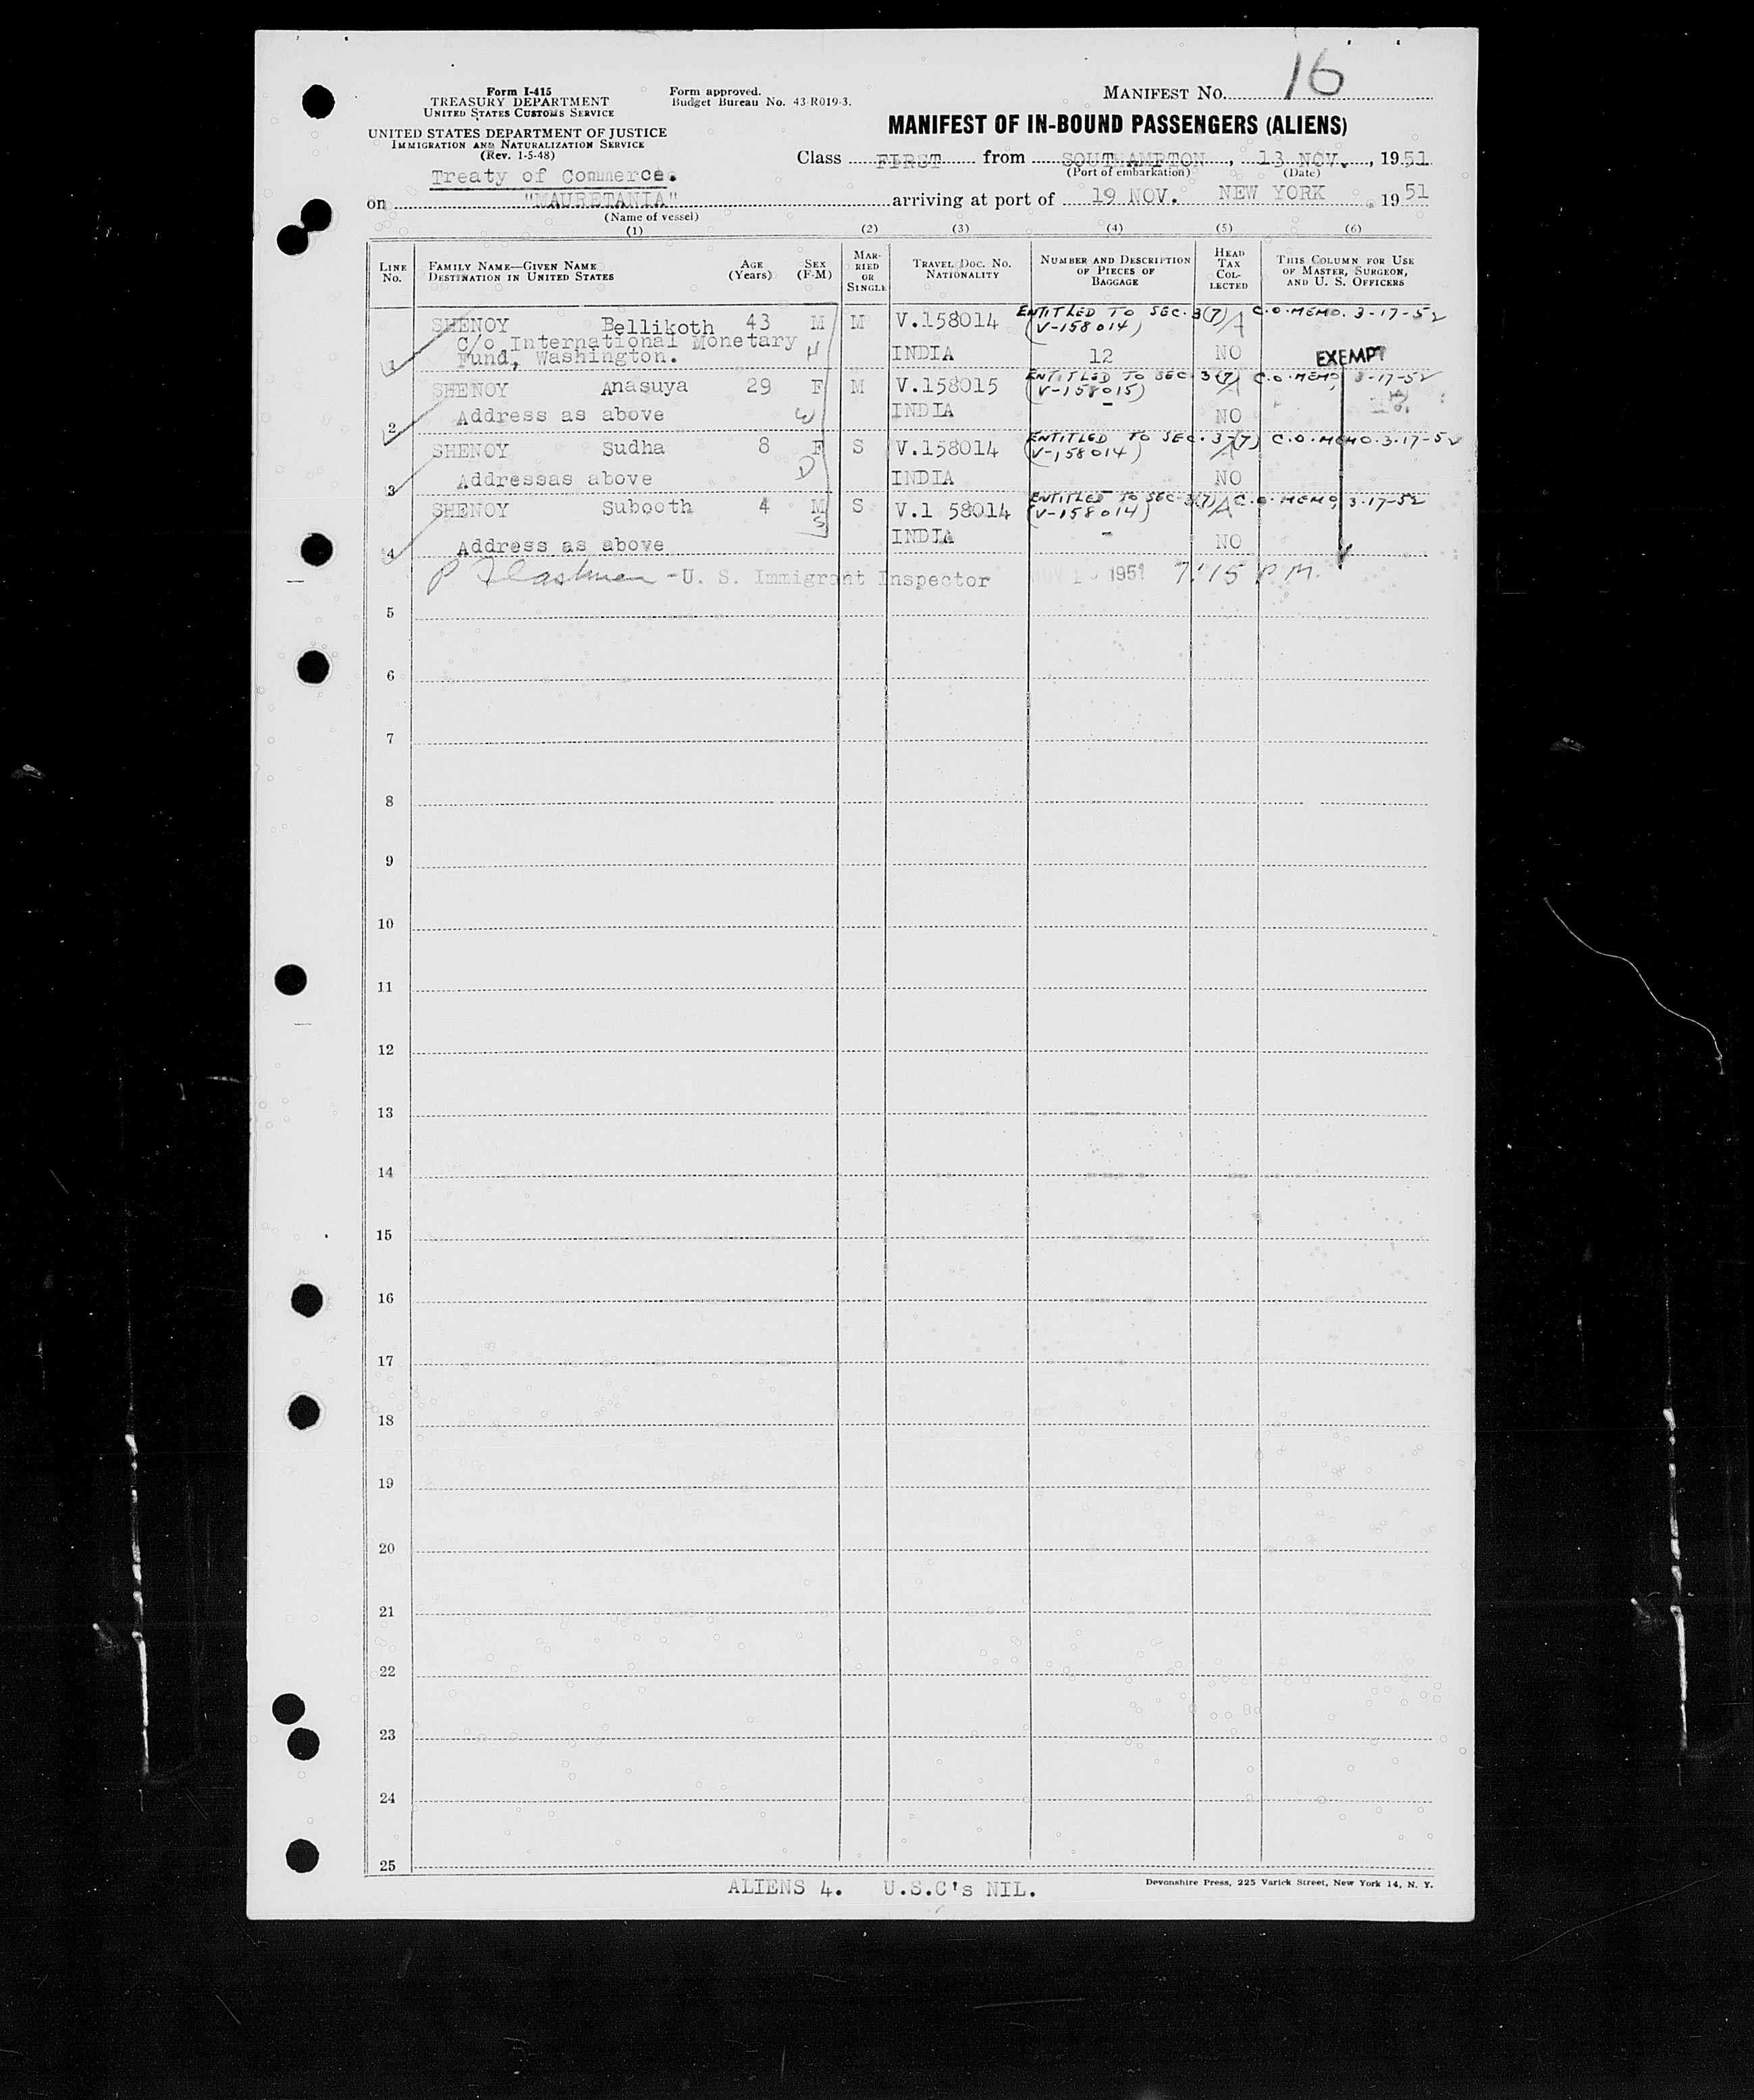 16
Form I-415
TREASURY DEPARTMENT
UNITED STATES CUSTOMS SERVICE
UNITED STATES DEPARTMENT OF JUSTICE
IMMIGRATION AND NATURALIZATION SERVICE
(Rev. 1-5-48)
Form approved.
Budget Bureau No. 43-R019-3.
MANIFEST NO.
MANIFEST OF IN-BOUND PASSENGERS (ALIENS)
Class FIRST from SOUTHAMPTON, 13 NOV., 1951
(Port of embarkation) (Date)
Treaty of Commerce.
on "MAURETANIA" arriving at port of 19 NOV. NEW YORK 1951
(Name of vessel)
(1) (2) (3) (4) (5) (6)
LINE NO.
FAMILY NAME—GIVEN NAME
DESTINATION IN UNITED STATES
AGE (Years)
SEX (F-M)
MARRIED OR SINGLE
TRAVEL DOC. NO.
NATIONALITY
NUMBER AND DESCRIPTION OF PIECES OF BAGGAGE
HEAD TAX COLLECTED
THIS COLUMN FOR USE OF MASTER, SURGEON, AND U. S. OFFICERS
SHENOY Bellikoth 43 M M V.158014 ENTITLED TO SEC. 3(7) C.O. MEMO. 3-17-52
(V-158014)
C/o International Monetary H
1 Fund, Washington. INDIA 12 NO EXEMPT
SHENOY Anasuya 29 F M V.158015 ENTITLED TO SEC. 3(7) C.O. MEMO, 3-17-52
(V-158015)
2 Address as above W INDIA - NO
SHENOY Sudha 8 F S V.158014 ENTITLED TO SEC. 3-(7) C.O. MEMO. 3-17-52
(V-158014)
3 Addressas above D INDIA NO
SHENOY Subooth 4 M S V.1 58014 ENTITLED TO SEC. 3(7) C.O. MEMO, 3-17-52
(V-158014)
S
4 Address as above INDIA - NO
- U. S. Immigrant Inspector 1951 7:15 P.M.
5
6
7
8
9
10
11
12
13
14
15
16
17
18
19
20
21
22
23
24
25
ALIENS 4. U.S.C's NIL.
Devonshire Press, 225 Varick Street, New York 14, N. Y.